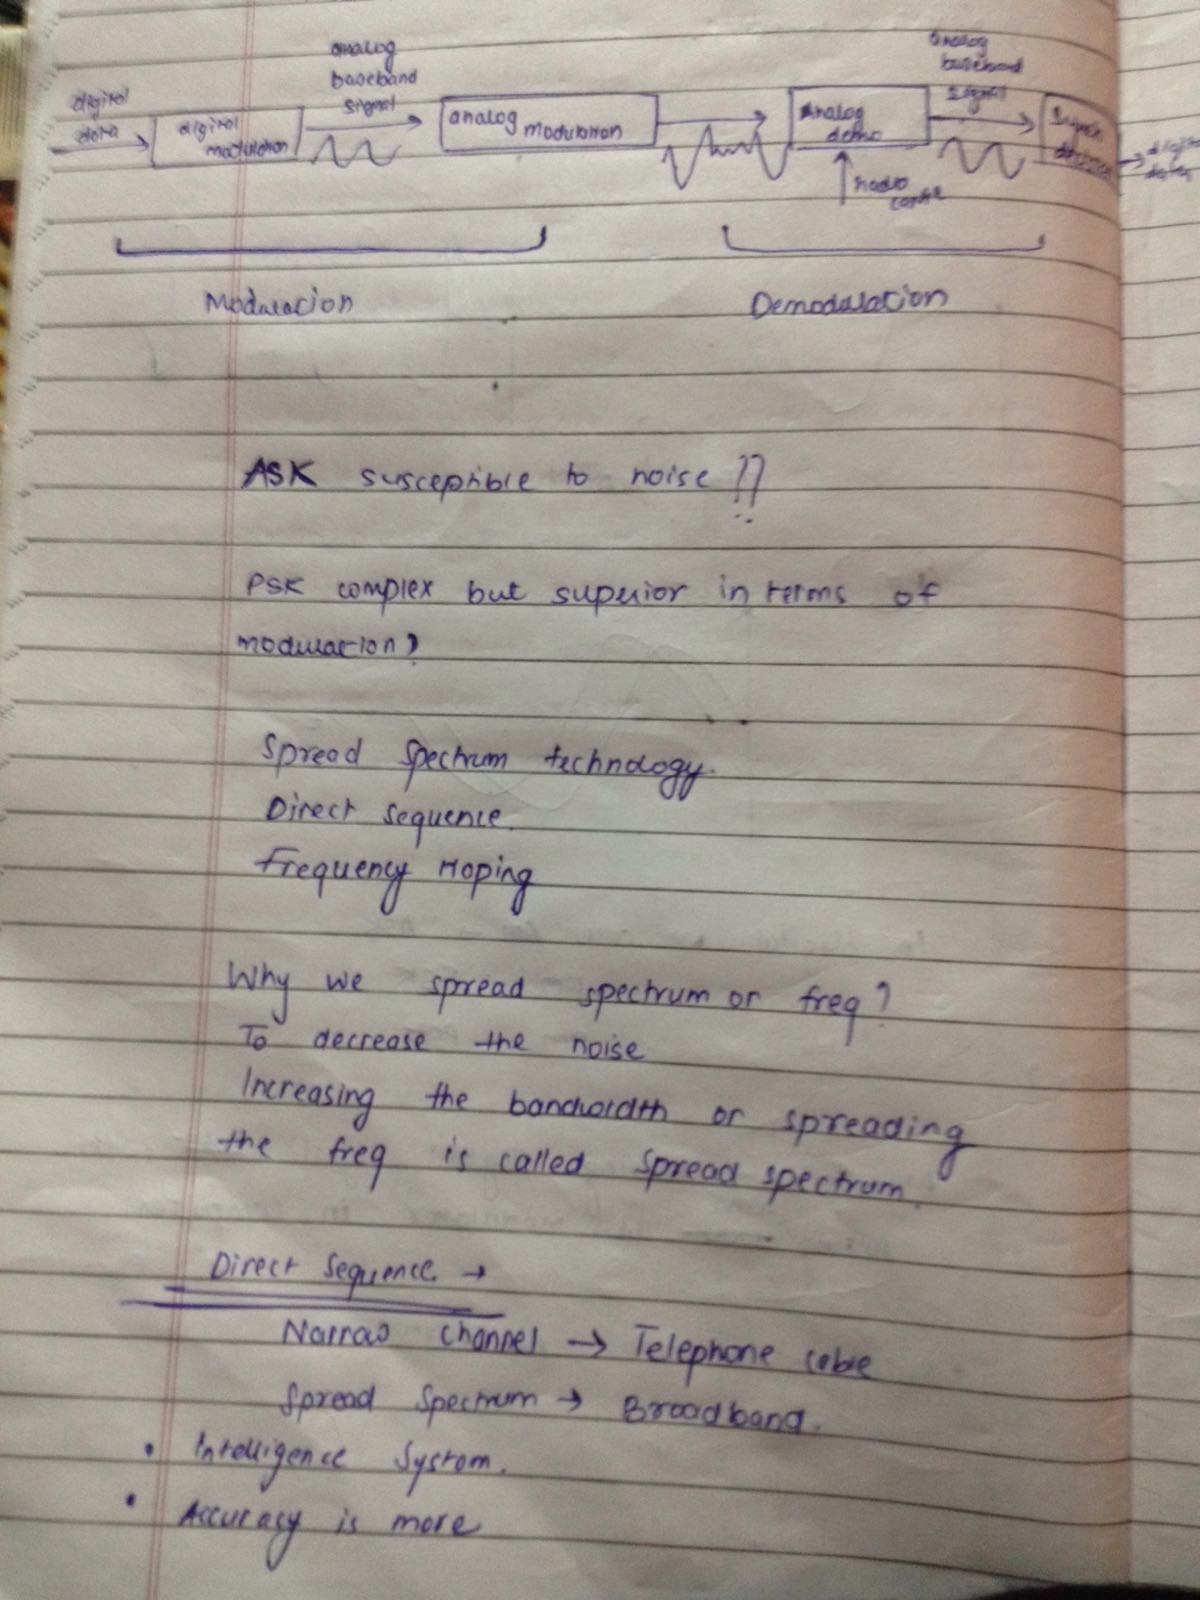 digital
data
digital
modulation
analog
baseband
signal
analog modulation
analog
demo
radio
analog
baseband
signal
digital
data
Modulation
Demodulation
ASK susceptible to noise ??
PSK complex but superior in terms of
modulation?
Spread Spectrum technology.
Direct sequence.
Frequency Hoping
Why we spread spectrum or freq?
To decrease the noise
Increasing the bandwidth or spreading
the freq is called spread spectrum.
Direct Sequence →
Narrow channel → Telephone cable
Spread Spectrum → Broadband.
• Intelligence System.
• Accuracy is more